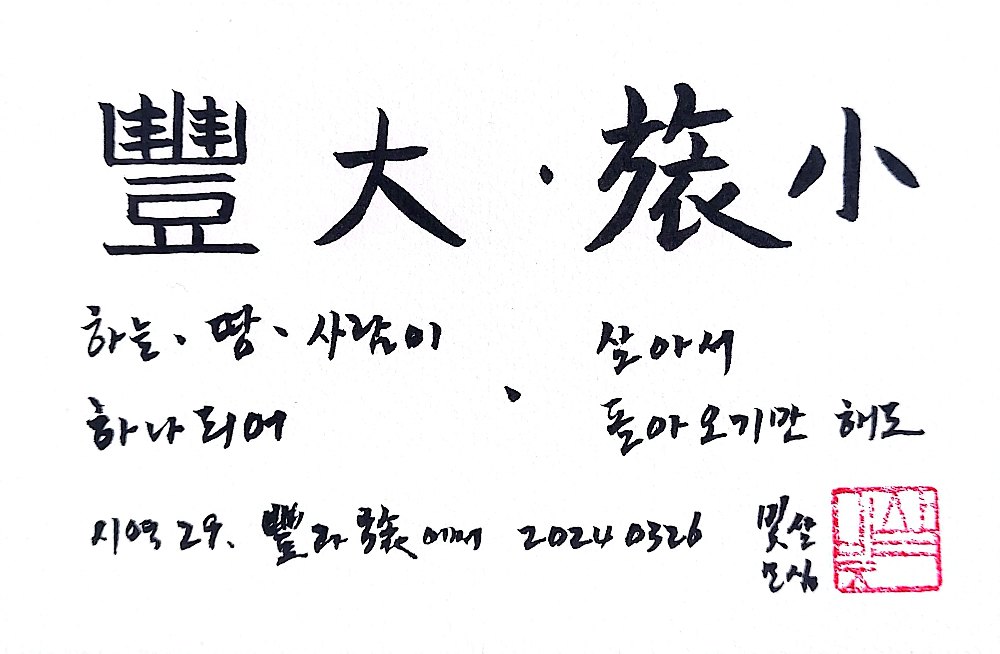 豐 大 · 旅 小
하늘、땅、사람이
하나되어
살아서
돌아오기만 해도
시역 29. 豐과 旅에서 20240326 빛살
모심